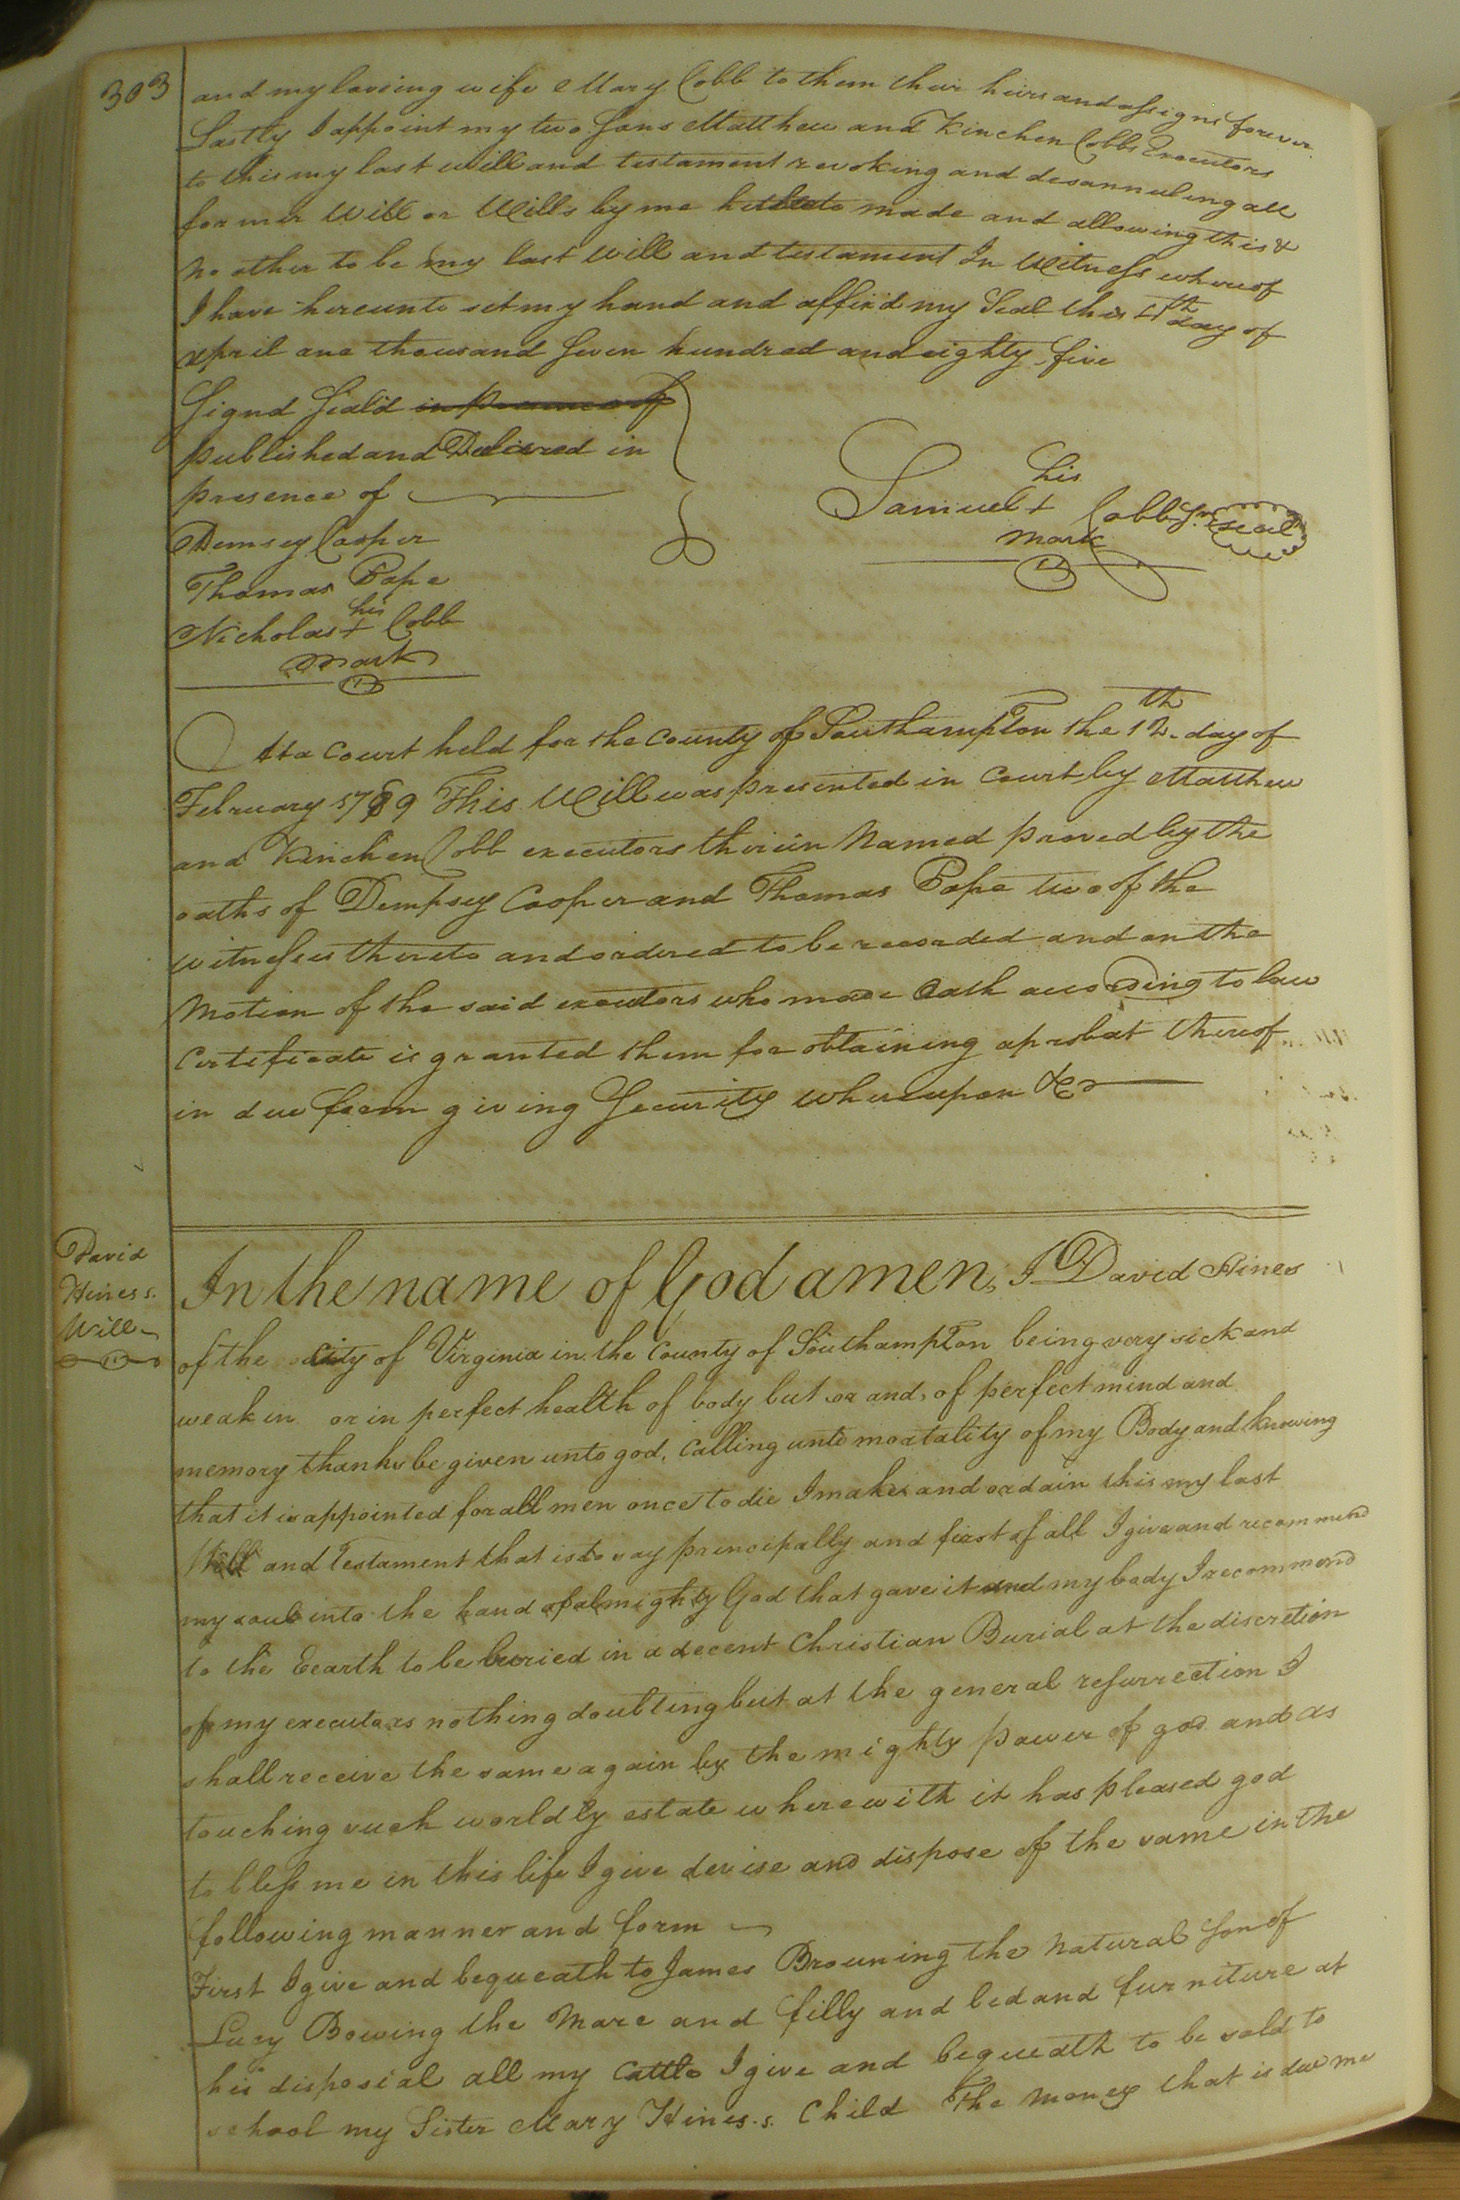 303
and my loveing wife Mary Cobb to them their heirs and assigns forever.
Lastly I appoint my two Sons Matthew and Kinchen Cobbs Executors
to this my last will and testament revoking and desannuling all
former Will or Wills by me hitherto made and allowing this &
no other to be my last Will and testament In Witness whereof
I have hereunto set my hand and affixd my Seal this 4th day of
april one thousand Seven hundred and eighty five
Signd Seal'd in presence of
published and Delivred in
presence of
his
Samuel + Cobb Jnr seal
mark
Demsey Cooper
Thomas Pope
his
Nicholas + Cobb
mark
At a Court held for the County of Southampton the 12th day of
February 1789 This Will was presented in Court by Matthew
and Kinchen Cobb executors therein Named proved by the
oaths of Dempsey Cooper and Thomas Pope two of the
witnesses thereto and ordered to be recorded and on the
Motion of the said executors who made Oath according to law
Certificate is granted them for obtaining a probat thereof
in due form giving Security whereupon &c
David
Hines s.
Will
In the name of God amen, I David Hines
of the City of Virginia in the County of Southampton being very sick and
weak in or in perfect health of body but or and, of perfect mind and
memory thanks be given unto god, Calling unto mortality of my Body and knowing
that it is appointed for all men once to die I make and ordain this my last
Will and Testament that is to say principally and first of all I give and recommend
my soul into the hand of almighty God that gave it and my body I recommend
to the Eearth to be buried in a decent Christian Burial at the discretion
of my executors nothing doubting but at the general resurrection I
shall receive the same again by the mighty power of god and as
touching such worldly estate wherewith it has pleased god
to bless me in this life I give devise and dispose of the same in the
following manner and form
First I give and bequeath to James Browning the Natural Son of
Lucy Bowing the Mare and filly and bed and furniture at
his disposial all my Cattle I give and bequeath to be sold to
school my Sister Mary Hines.s. Child The Money that is due me